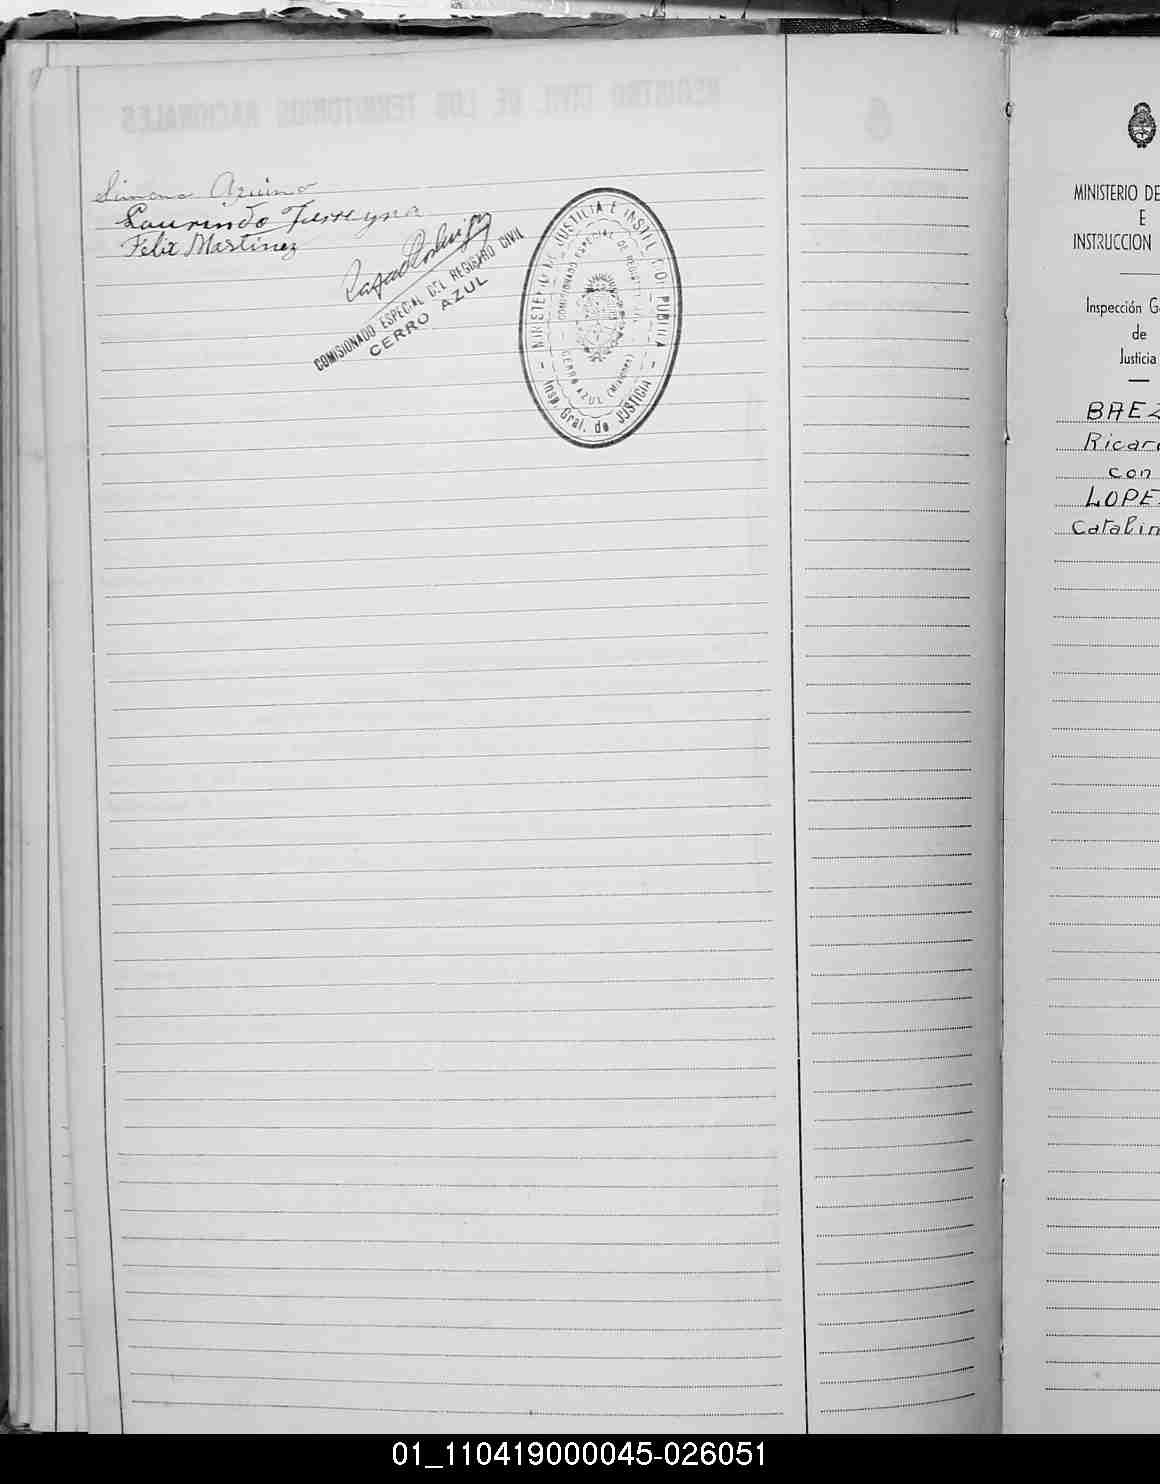 Simona Aquino
Laurindo Ferreyra
Felix Martinez
COMISIONADO ESPECIAL DEL REGISTRO CIVIL
CERRO AZUL
MINISTERIO DE JUSTICIA E INSTRUCCION PUBLICA
COMISIONADO ESPECIAL DE REGISTRO CIVIL
CERRO AZUL (Misiones)
Insp. Gral. de JUSTICIA
REGISTRO CIVIL DE LOS TERRITORIOS NACIONALES
MINISTERIO DE
E
INSTRUCCION
Inspección G
de
Justicia
BAEZ
Ricar
con
LOPE
Catalin
01_110419000045-026051